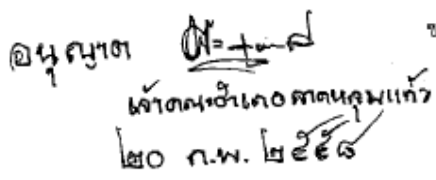 อนุญาต
เจ้าคณะอำเภอลาดหลุมแก้ว
๒๐ ก.พ. ๒๕๕๘